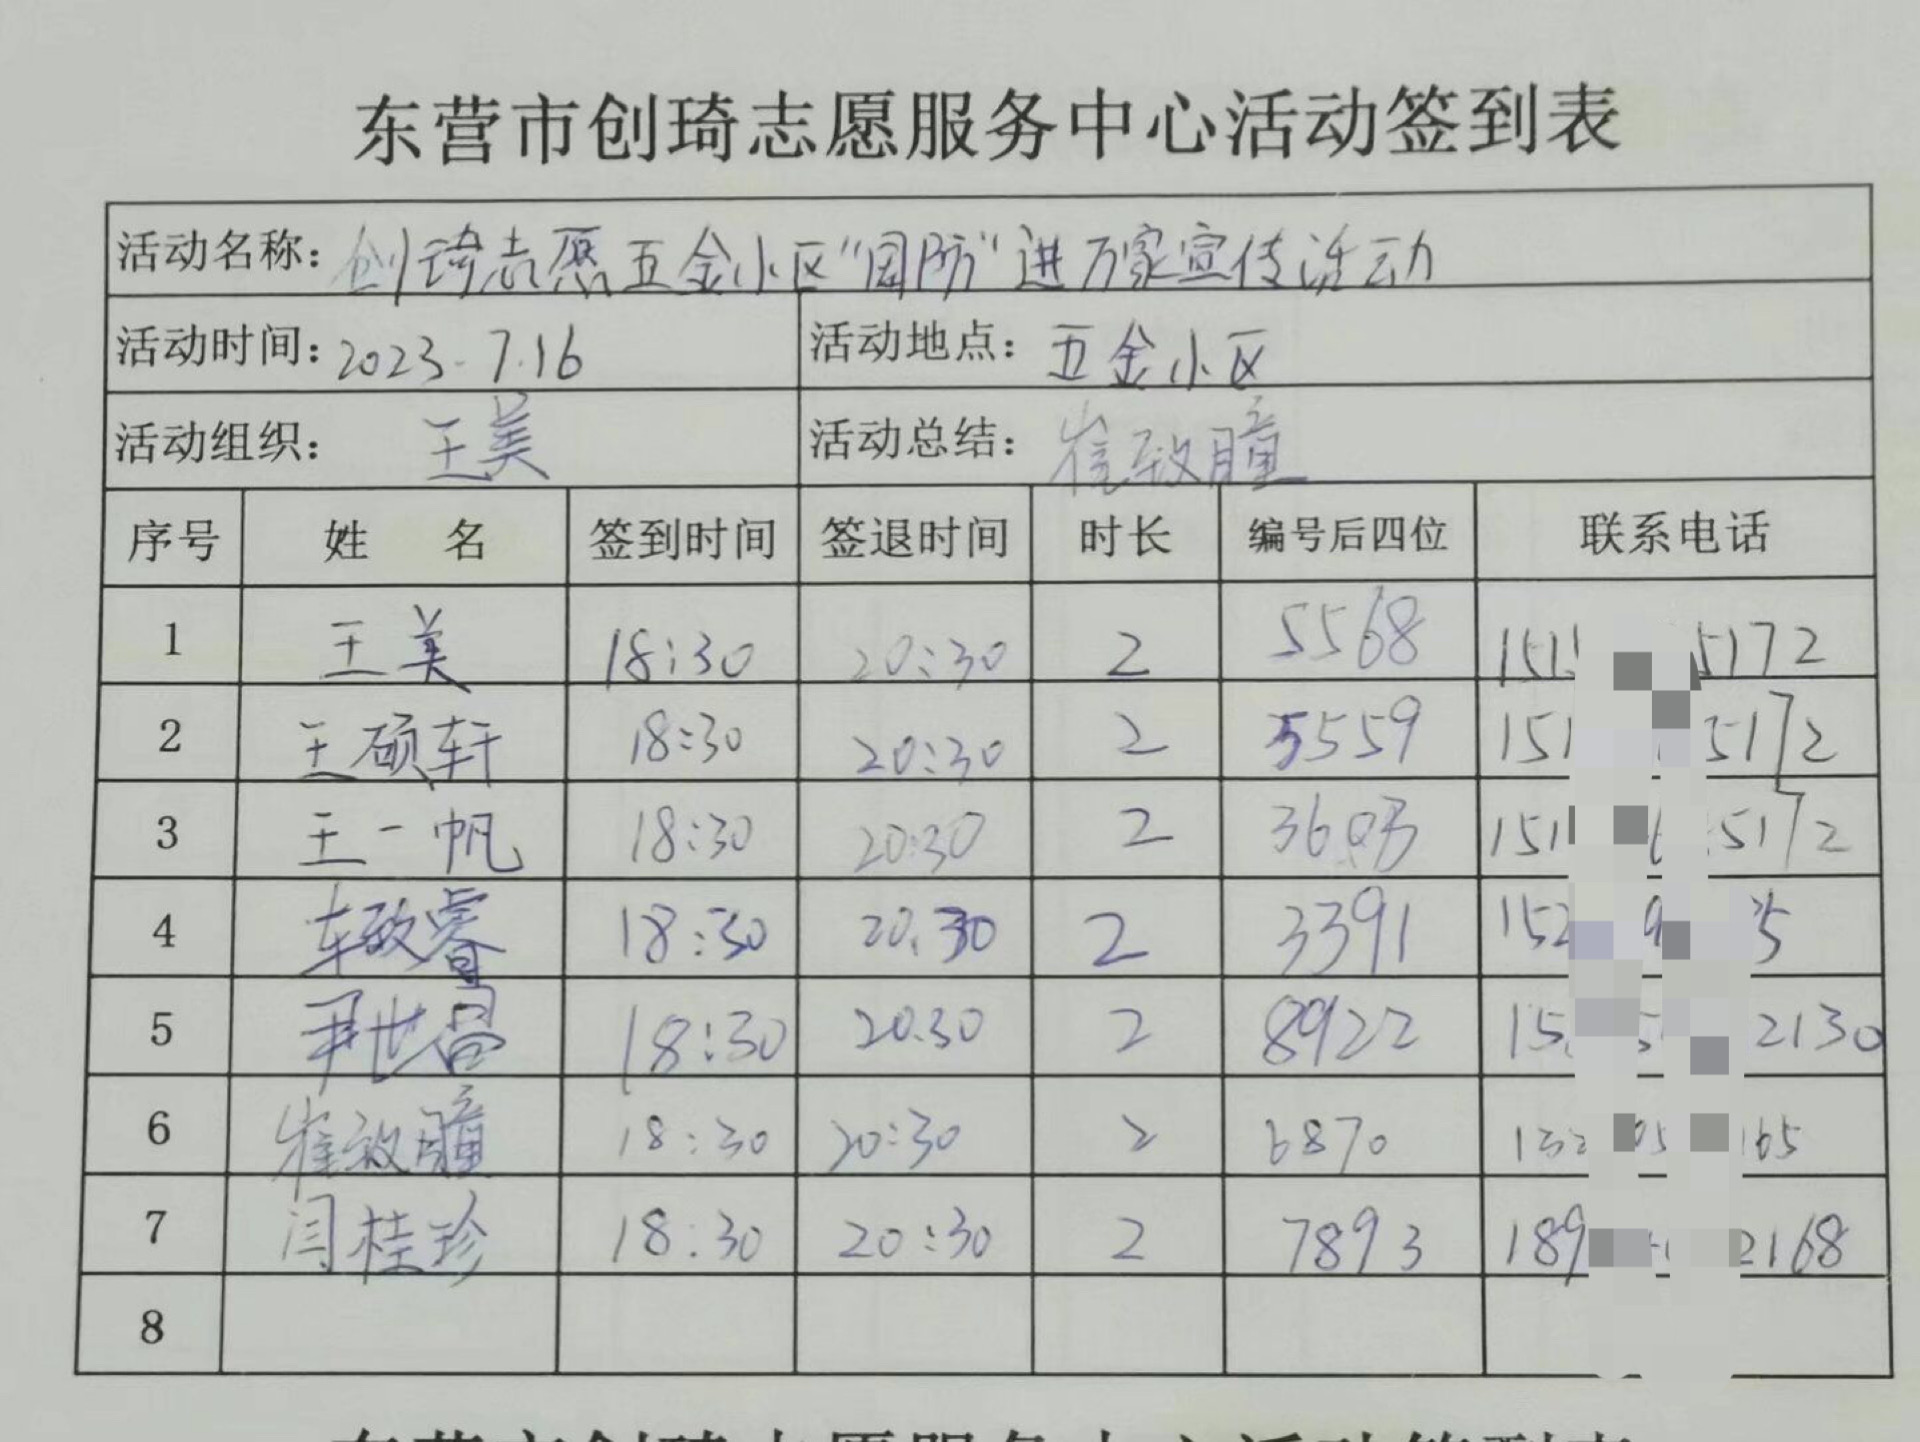 东营市创琦志愿服务中心活动签到表
活动名称：创琦志愿五金小区“国防”进万家宣传活动
活动时间：2023.7.16 活动地点：五金小区
活动组织：王美 活动总结：崔致瞳
序号 姓名 签到时间 签退时间 时长 编号后四位 联系电话
1 王美 18:30 20:30 2 5568 151 5172
2 王硕轩 18:30 20:30 2 5559 151 5172
3 王一帆 18:30 20:30 2 3603 151 5172
4 车致睿 18:30 20:30 2 3391 152 5
5 尹世昌 18:30 20:30 2 8922 15 2130
6 崔致瞳 18:30 20:30 2 6870 132 165
7 闫桂珍 18:30 20:30 2 7893 189 2168
8
东营市创琦志愿服务中心活动签到表